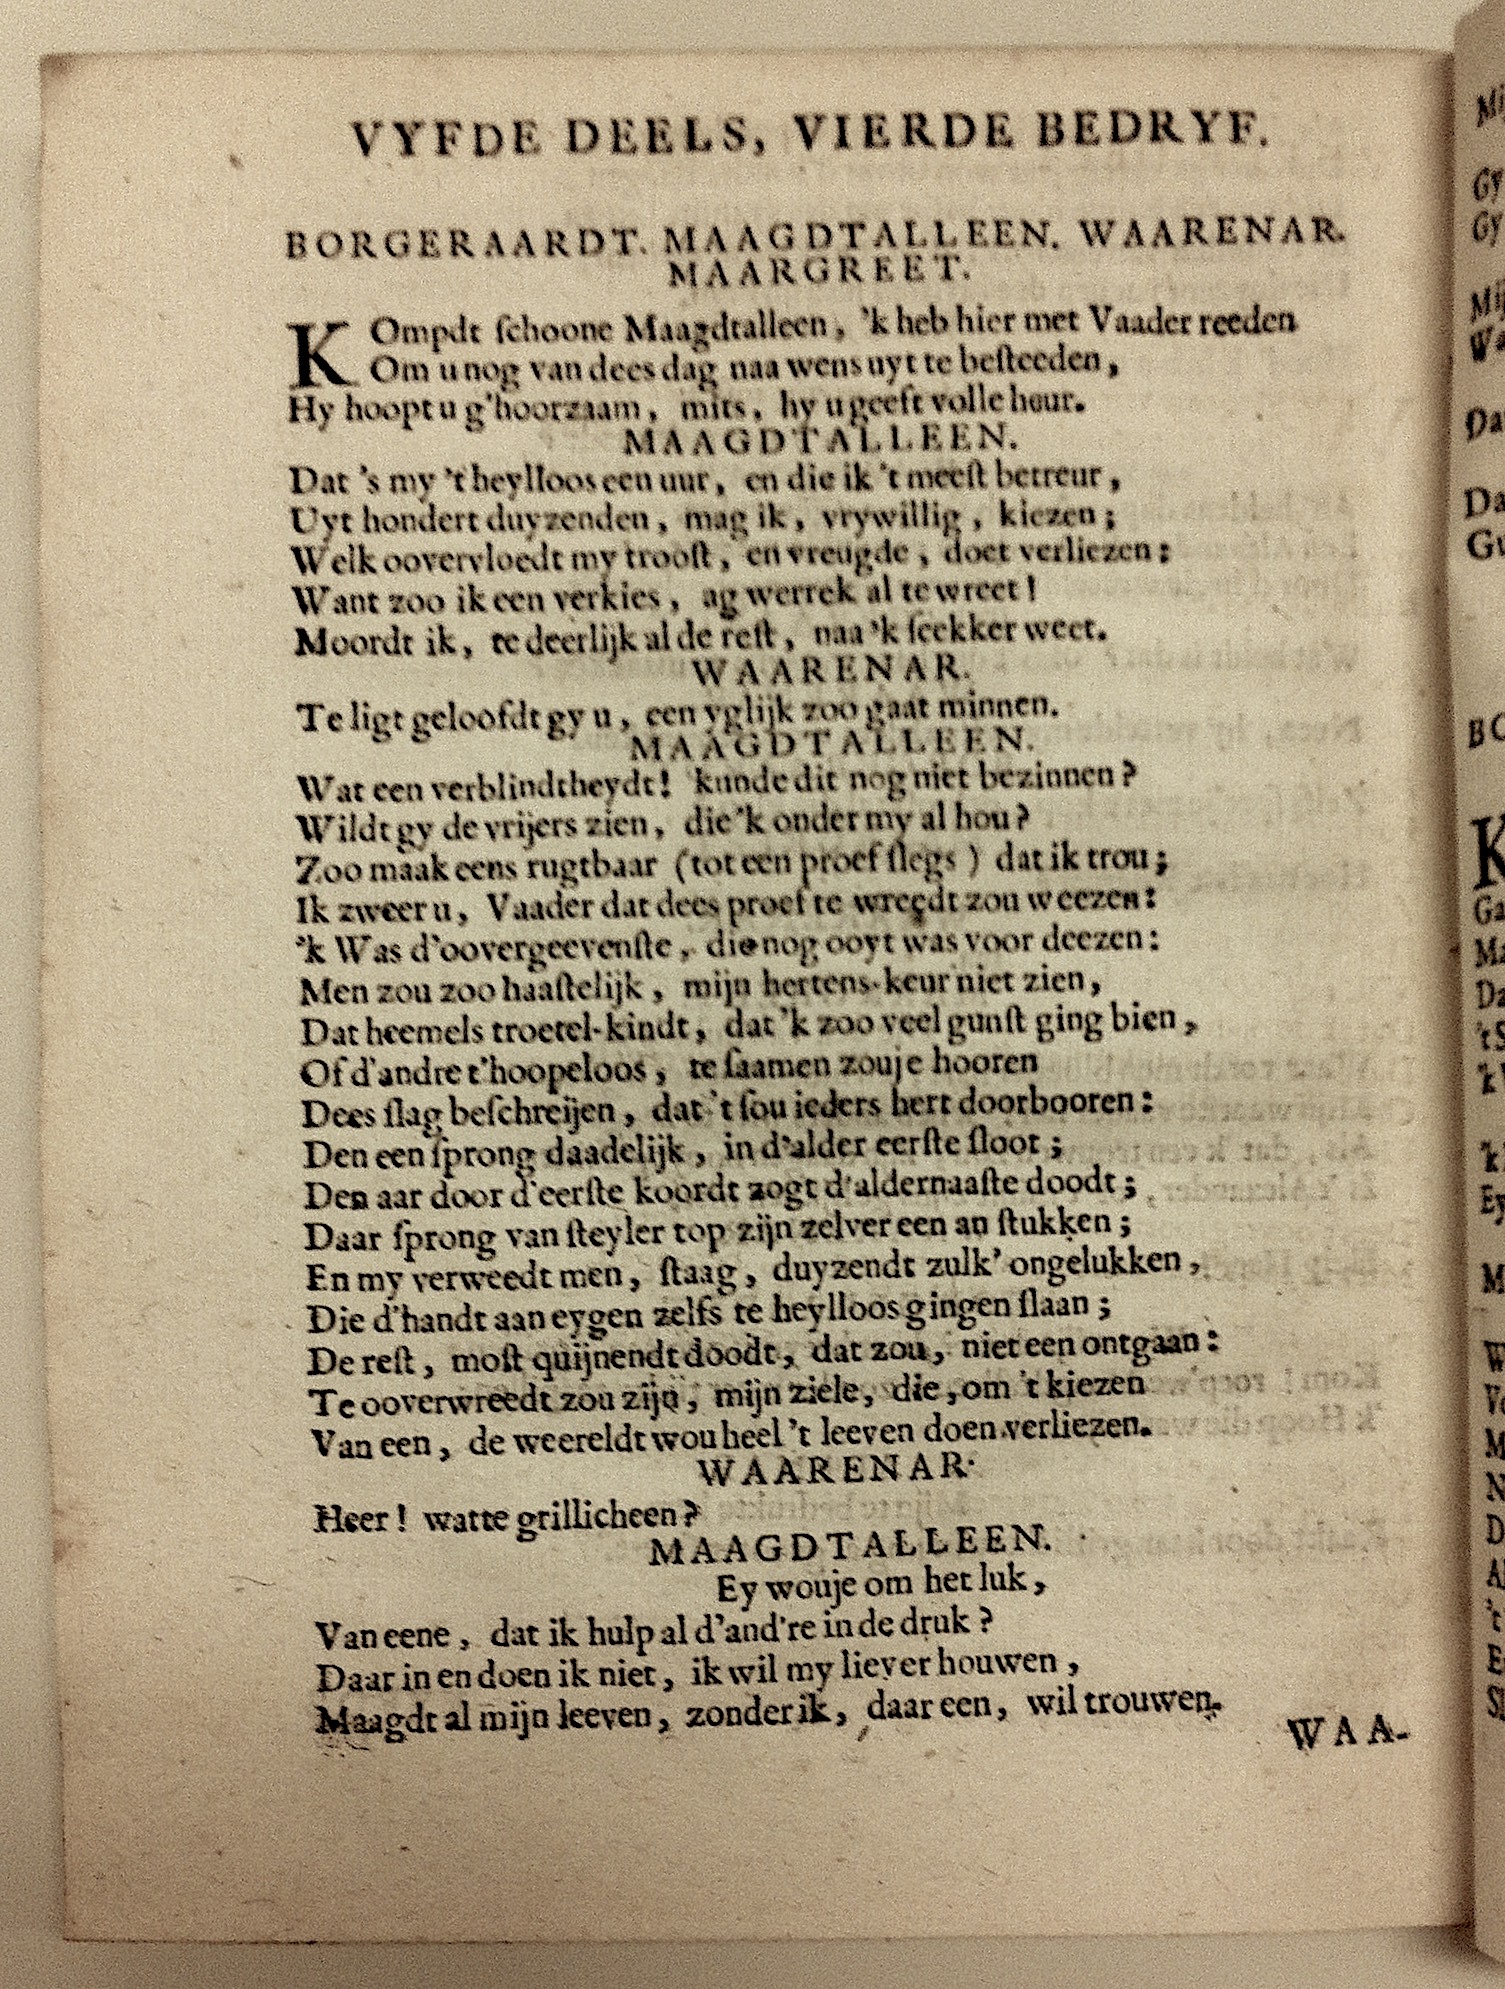 VYFDE DEELS, VIERDE BEDRYF.
BORGERAARDT. MAAGDTALLEEN. WAARENAR.
MAARGREET.
KOmpdt ſchoone Maagdtalleen, 'k heb hier met Vaader reeden
Om u nog van dees dag naa wens uyt te beſteeden,
Hy hoopt u g'hoorzaam, mits, hy u geeft volle heur.
MAAGDTALLEEN.
Dat 's my 't heylloos een uur, en die ik 't meeſt betreur,
Uyt hondert duyzenden, mag ik, vrywillig, kiezen;
Welk oovervloedt my trooſt, en vreugde, doet verliezen:
Want zoo ik een verkies, ag werrek al te wreet!
Moordt ik, te deerlijk al de reſt, naa 'k ſeekker weet.
WAARENAR.
Te ligt geloofdt gy u, een yglijk zoo gaat minnen.
MAAGDTALLEEN.
Wat een verblindtheydt! kunde dit nog niet bezinnen?
Wildt gy de vrijers zien, die 'k onder my al hou?
Zoo maak eens rugtbaar (tot een proef ſlegs) dat ik trou;
Ik zweer u, Vaader dat dees proef te wreedt zou weezen:
'k Was d'oovergeevenſte, die nog ooyt was voor deezen:
Men zou zoo haaſtelijk, mijn hertens-keur niet zien,
Dat heemels troetel-kindt, dat 'k zoo veel gunſt ging bien,
Of d'andre t'hoopeloos, te ſaamen zouje hooren
Dees ſlag beſchreijen, dat 't ſou ieders hert doorbooren:
Den een ſprong daadelijk, in d'alder eerſte ſloot;
Den aar door d'eerſte koordt zogt d'aldernaaſte doodt;
Daar ſprong van ſteyler top zijn zelver een an ſtukken;
En my verweedt men, ſtaag, duyzendt zulk' ongelukken,
Die d'handt aan eygen zelfs te heylloos gingen ſlaan;
De reſt, moſt quijnendt doodt, dat zou, niet een ontgaan:
Te ooverwreedt zou zijn, mijn ziele, die, om 't kiezen
Van een, de weereldt wou heel 't leeven doen verliezen.
WAARENAR.
Heer! watte grillicheen?
MAAGDTALLEEN.
Ey wouje om het luk,
Van eene, dat ik hulp al d'and're in de druk?
Daar in en doen ik niet, ik wil my liever houwen,
Maagdt al mijn leeven, zonder ik, daar een, wil trouwen.
WAA-